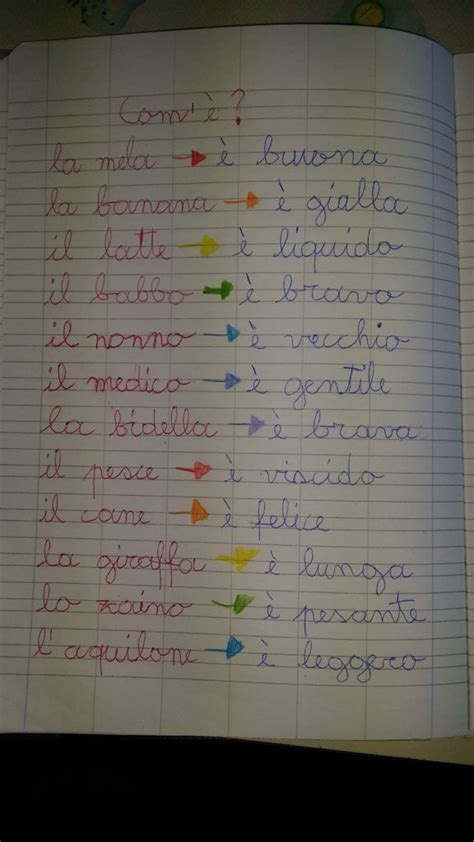 Com'è?
la mela → è buona
la banana → è gialla
il latte → è liquido
il babbo → è bravo
il nonno → è vecchio
il medico → è gentile
la bidella → è brava
il pesce → è viscido
il cane → è felice
la giraffa → è lunga
lo zaino → è pesante
l'aquilone → è leggero